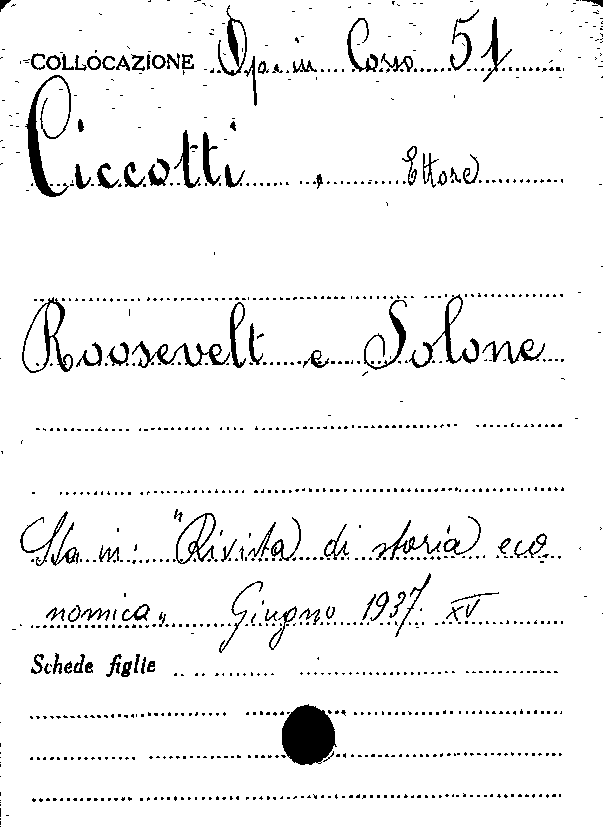 COLLOCAZIONE Op. in Corso 51
Ciccotti, Ettore
Roosevelt e Solone
Sta in: "Rivista di storia eco
nomica„ Giugno 1937. XV
Schede figlie